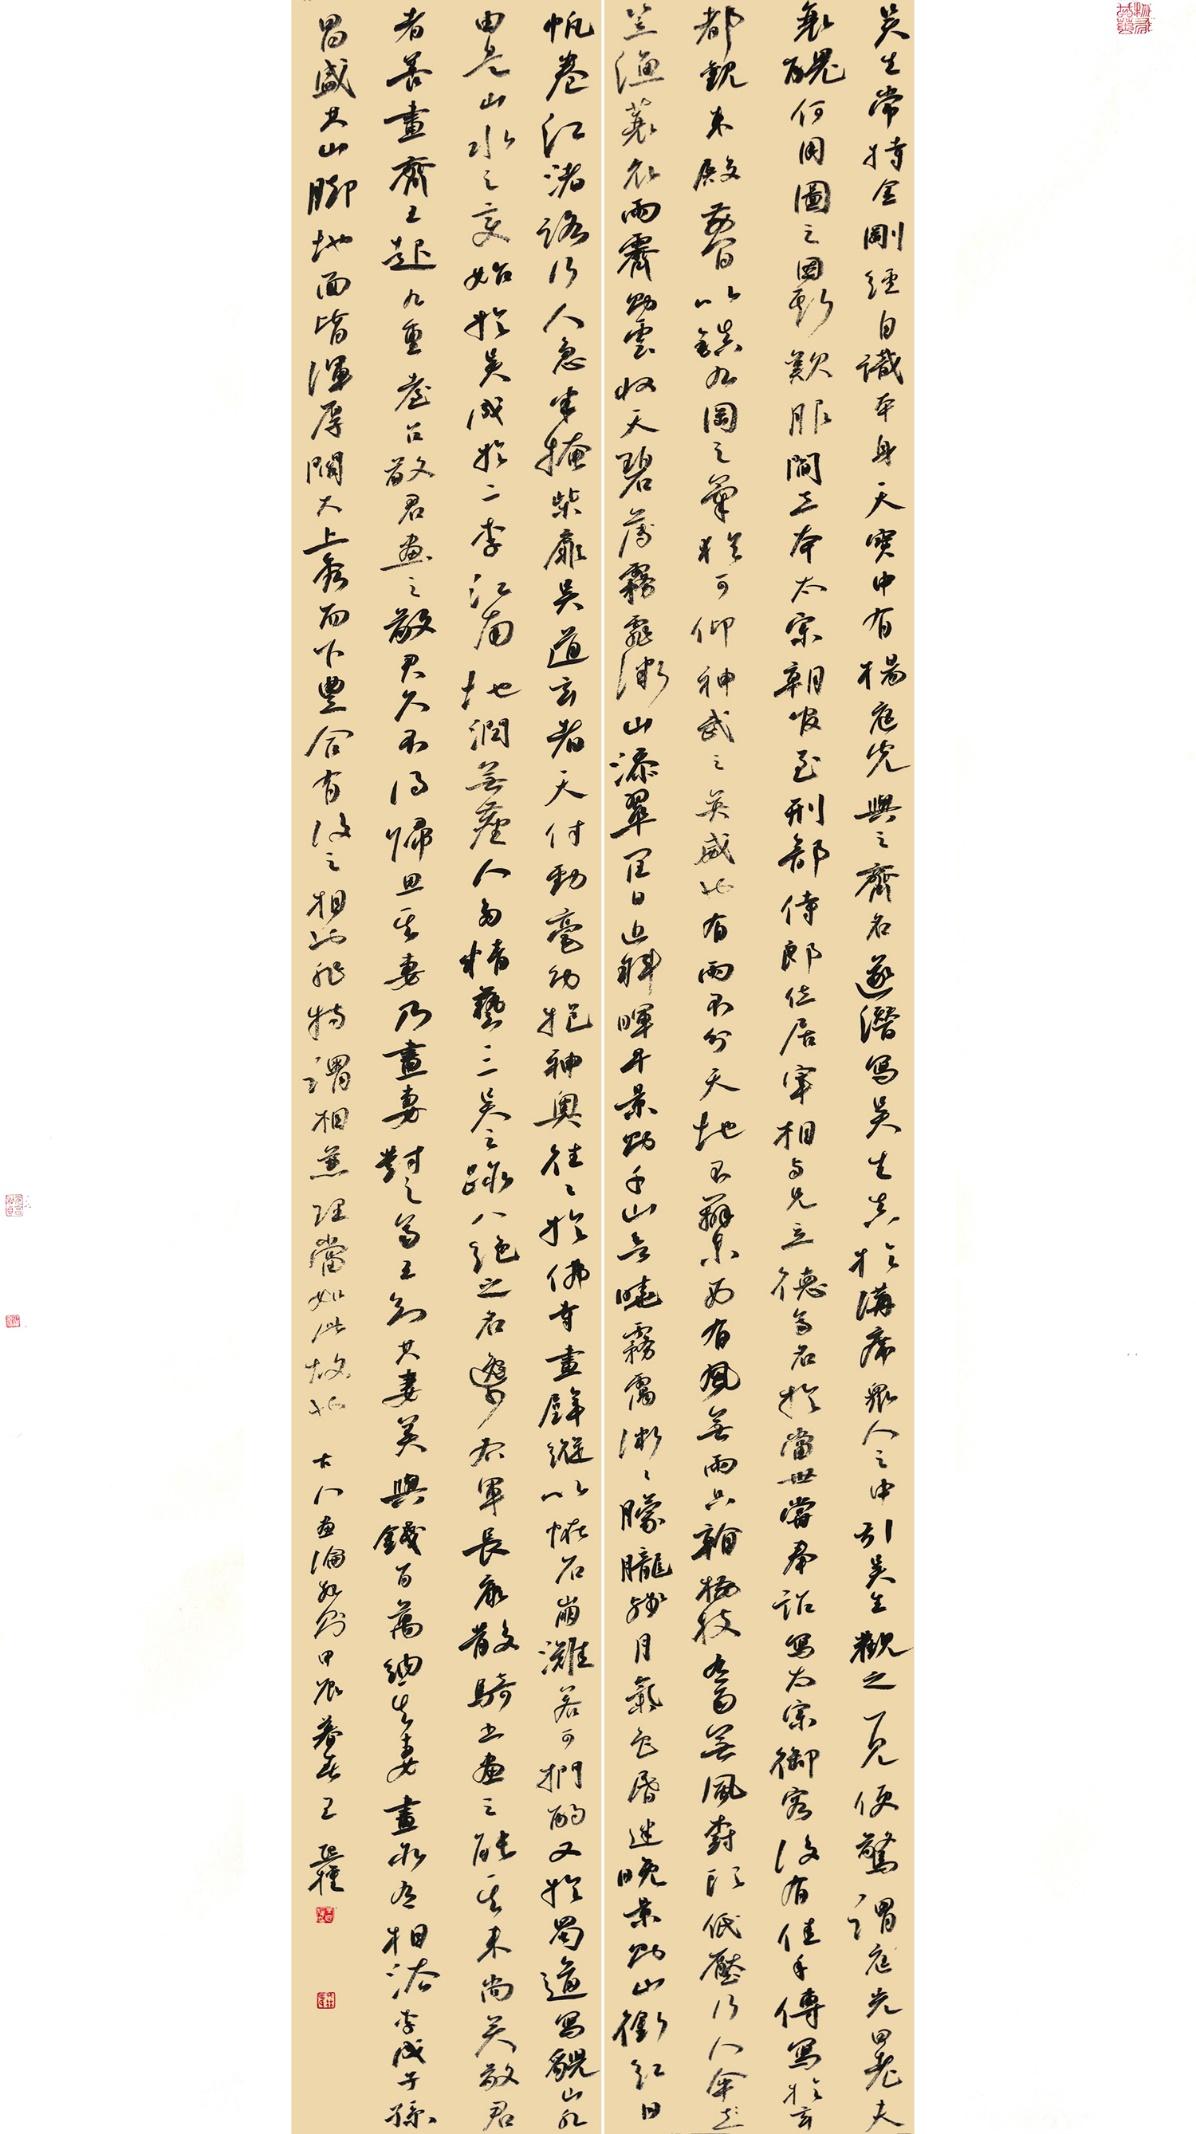 吳生常持金剛經自識本身天寶中有楊庭光與之齊名遂潛寫吳生真於講席眾人之中引吳生觀之一見便驚謂庭光曰老夫
衰醜何用圖之因斯歎服閻立本太宗朝官至刑部侍郎位居宰相與兄立德齊名於當世嘗奉詔寫太宗御容後有佳手傳寫於玄
都觀東殿前間以鎮九岡之氣猶可仰神武之英威也有雨不分天地不辨東西有風無雨只看樹枝有雨無風樹頭低壓行人傘
笠漁蓑衣雨霽則雲收天碧薄霧霏微山添翠潤日近斜暉早景則千山欲曉霧靄微微朦朧殘月氣色昏迷晚景則山銜紅日
帆卷江渚路行人急半掩柴扉吳道玄者天付勁毫幼抱神奧往往於佛寺畫壁縱以怪石崩灘若可捫酌又於蜀道寫貌山水
由是山水之變始於吳成於二李江南地潤無塵人多精藝三吳之跡八絕之名逸少右軍長康散騎書畫之能其來尚矣敬君
者善畫齊王起九重臺召敬君畫之敬君久不得歸思其妻乃畫妻對之齊王知其妻美與錢百萬納其妻畫亦有相法李成子孫
昌盛其山腳地面皆渾厚闊大上秀而下豐合有後之相也非特謂相兼理當如此故也 古人畫論數則甲辰暮春王